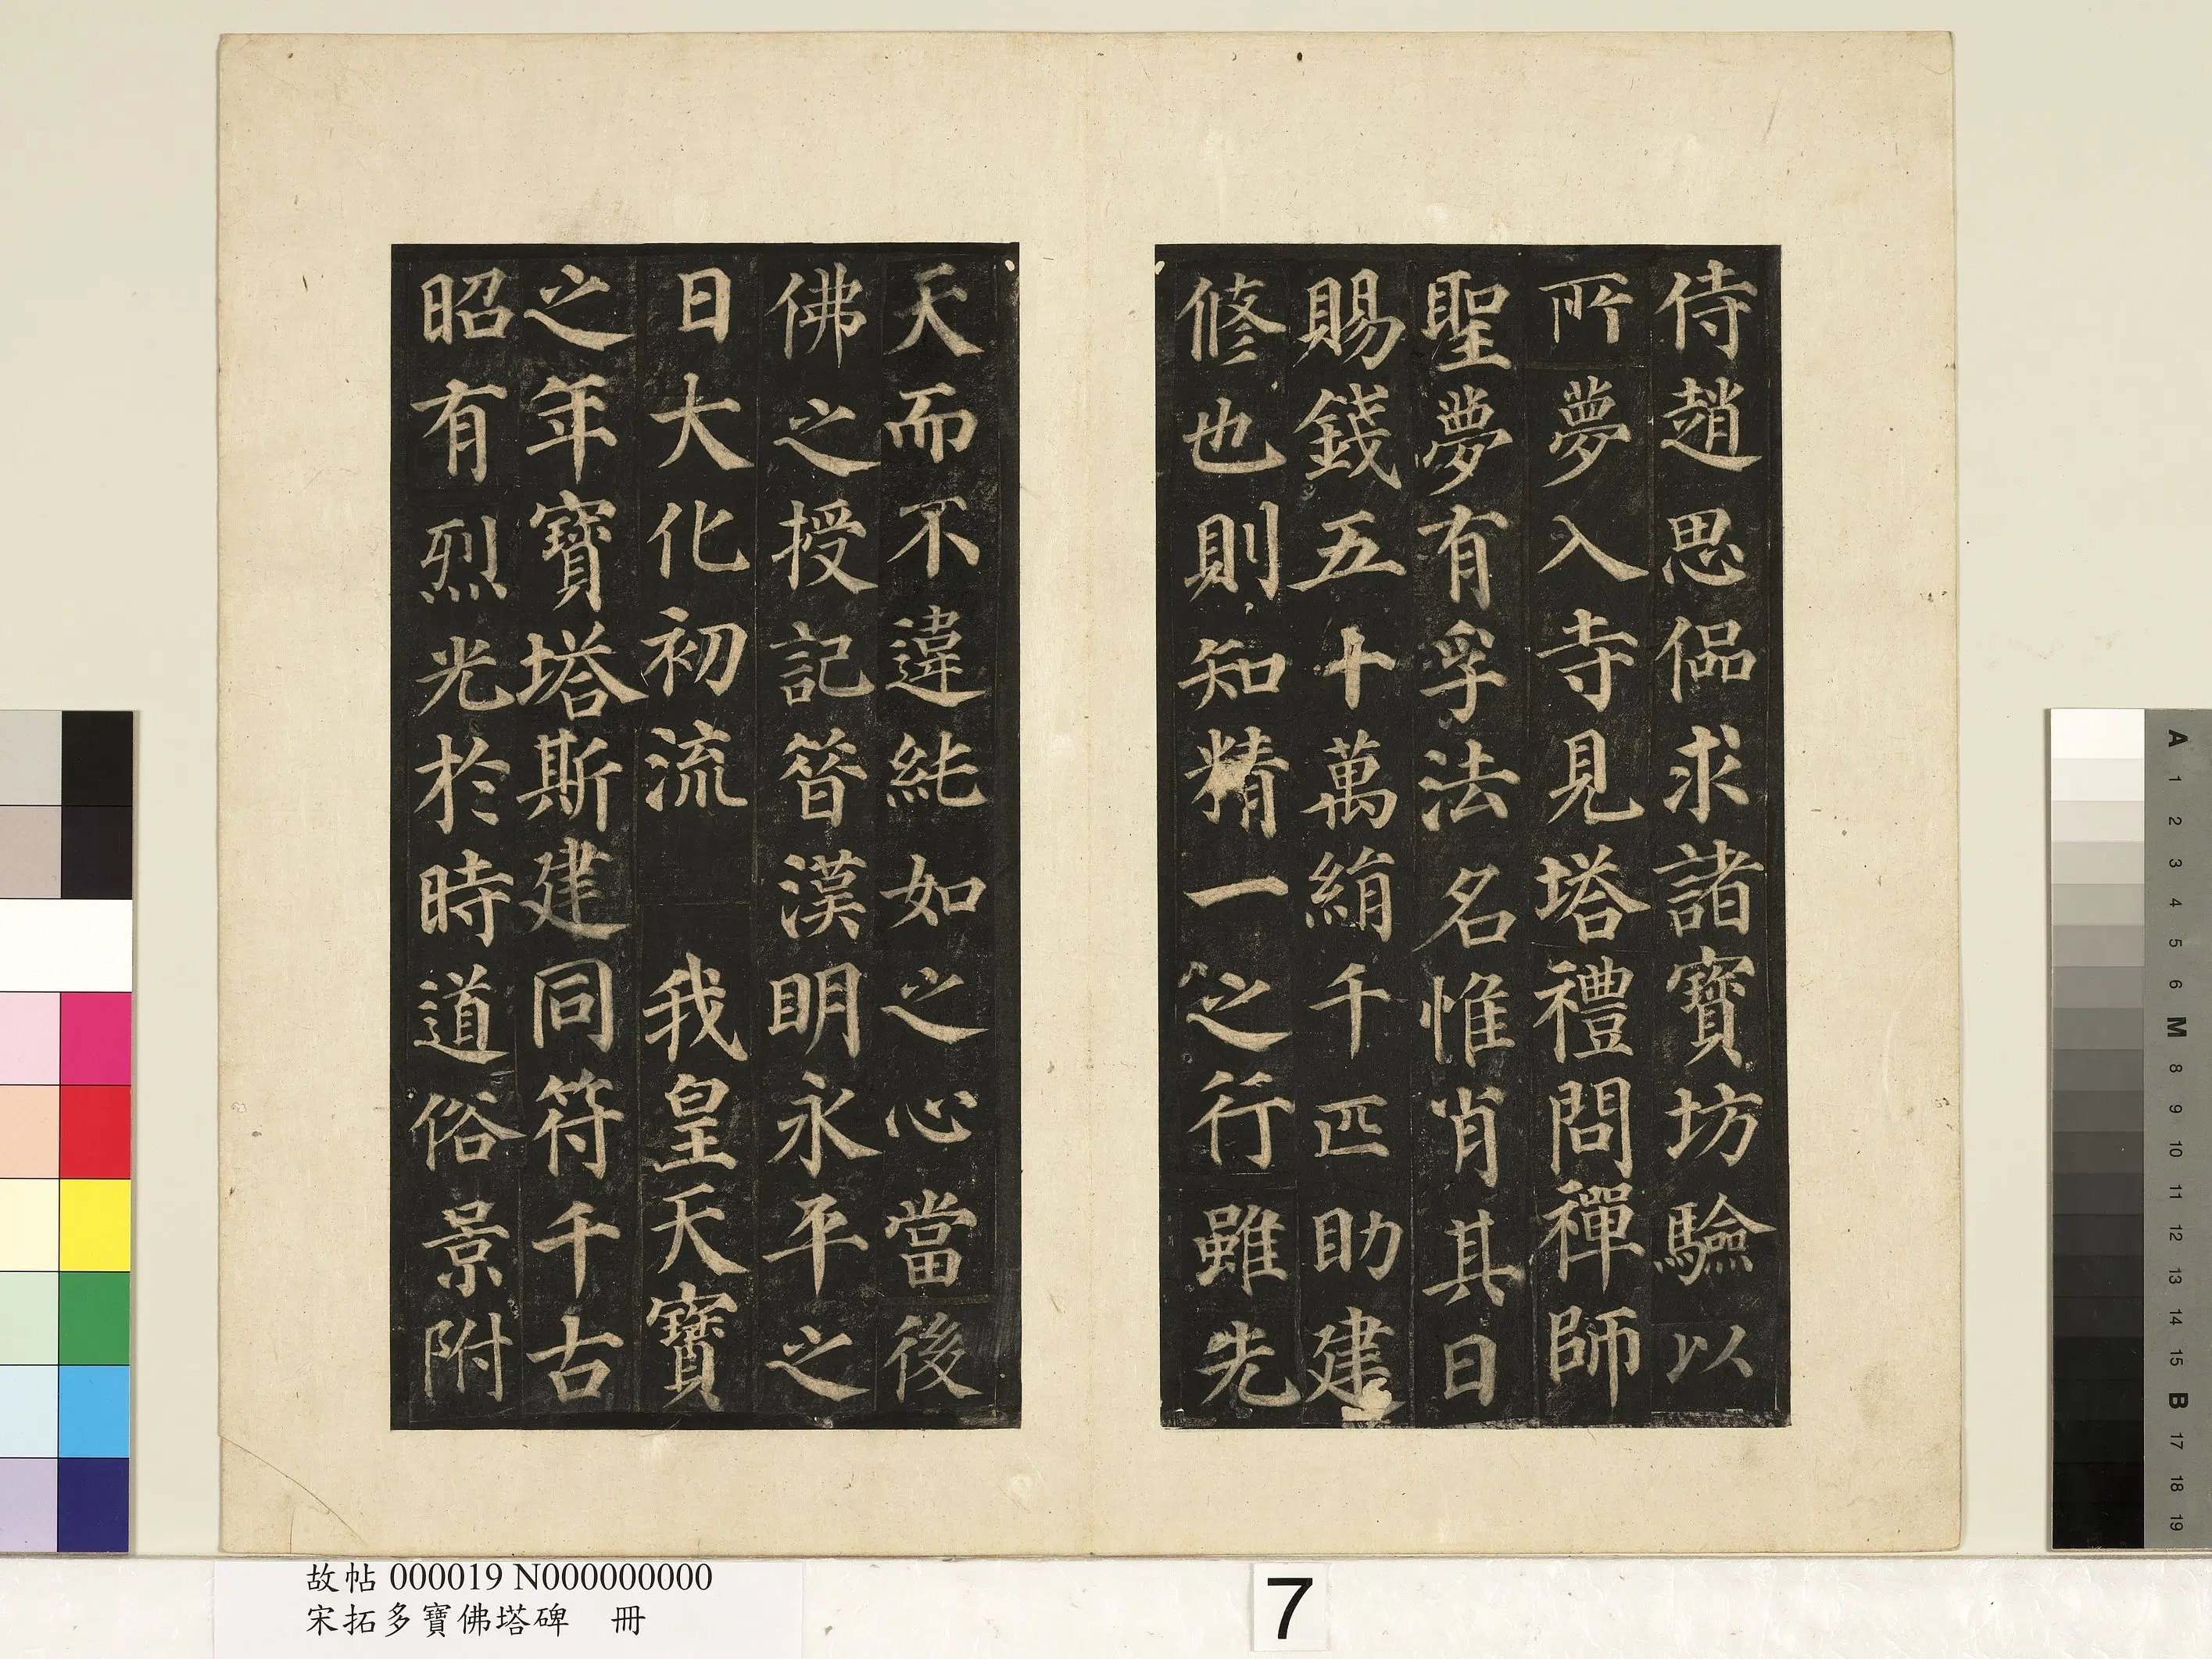 侍趙思偘求諸寶坊驗以
所夢入寺見塔禮問禪師
聖夢有孚法名惟肖其日
賜錢五十萬絹千匹助建
修也則知精一之行雖先
天而不違純如之心當後
佛之授記昔漢明永平之
日大化初流　我皇天寶
之年寶塔斯建同符千古
昭有烈光於時道俗景附
故帖 000019 N000000000
宋拓多寶佛塔碑　冊
7
A
1
2
3
4
5
6
M
8
9
10
11
12
13
14
15
B
17
18
19